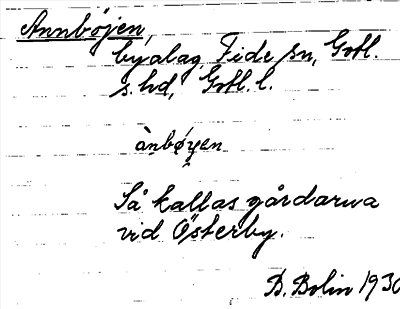 Annböjen,
byalag, Fide sn, Gotl.
s. hd, Gotl. l.
ànbǿyen
Så kallas gårdarna
vid Österby.
B. Bolin 1930